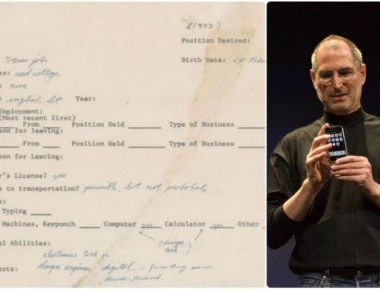 (1973)
Position Desired:
Steve jobs
Birth Date:
reed college
none
english, lit Year:
Employment:
(Most recent first)
From Position Held Type of Business
son for leaving:
From Position Held Type of Business
son for leaving:
r's License? yes
s to transportation? possible, but not probable
Typing
Machines, Keypunch Computer yes Calculator yes Other
(design, tech)
al Abilities:
electronics tech or
sts: design engineer, digital.— from Bay near
Hewitt-Packard